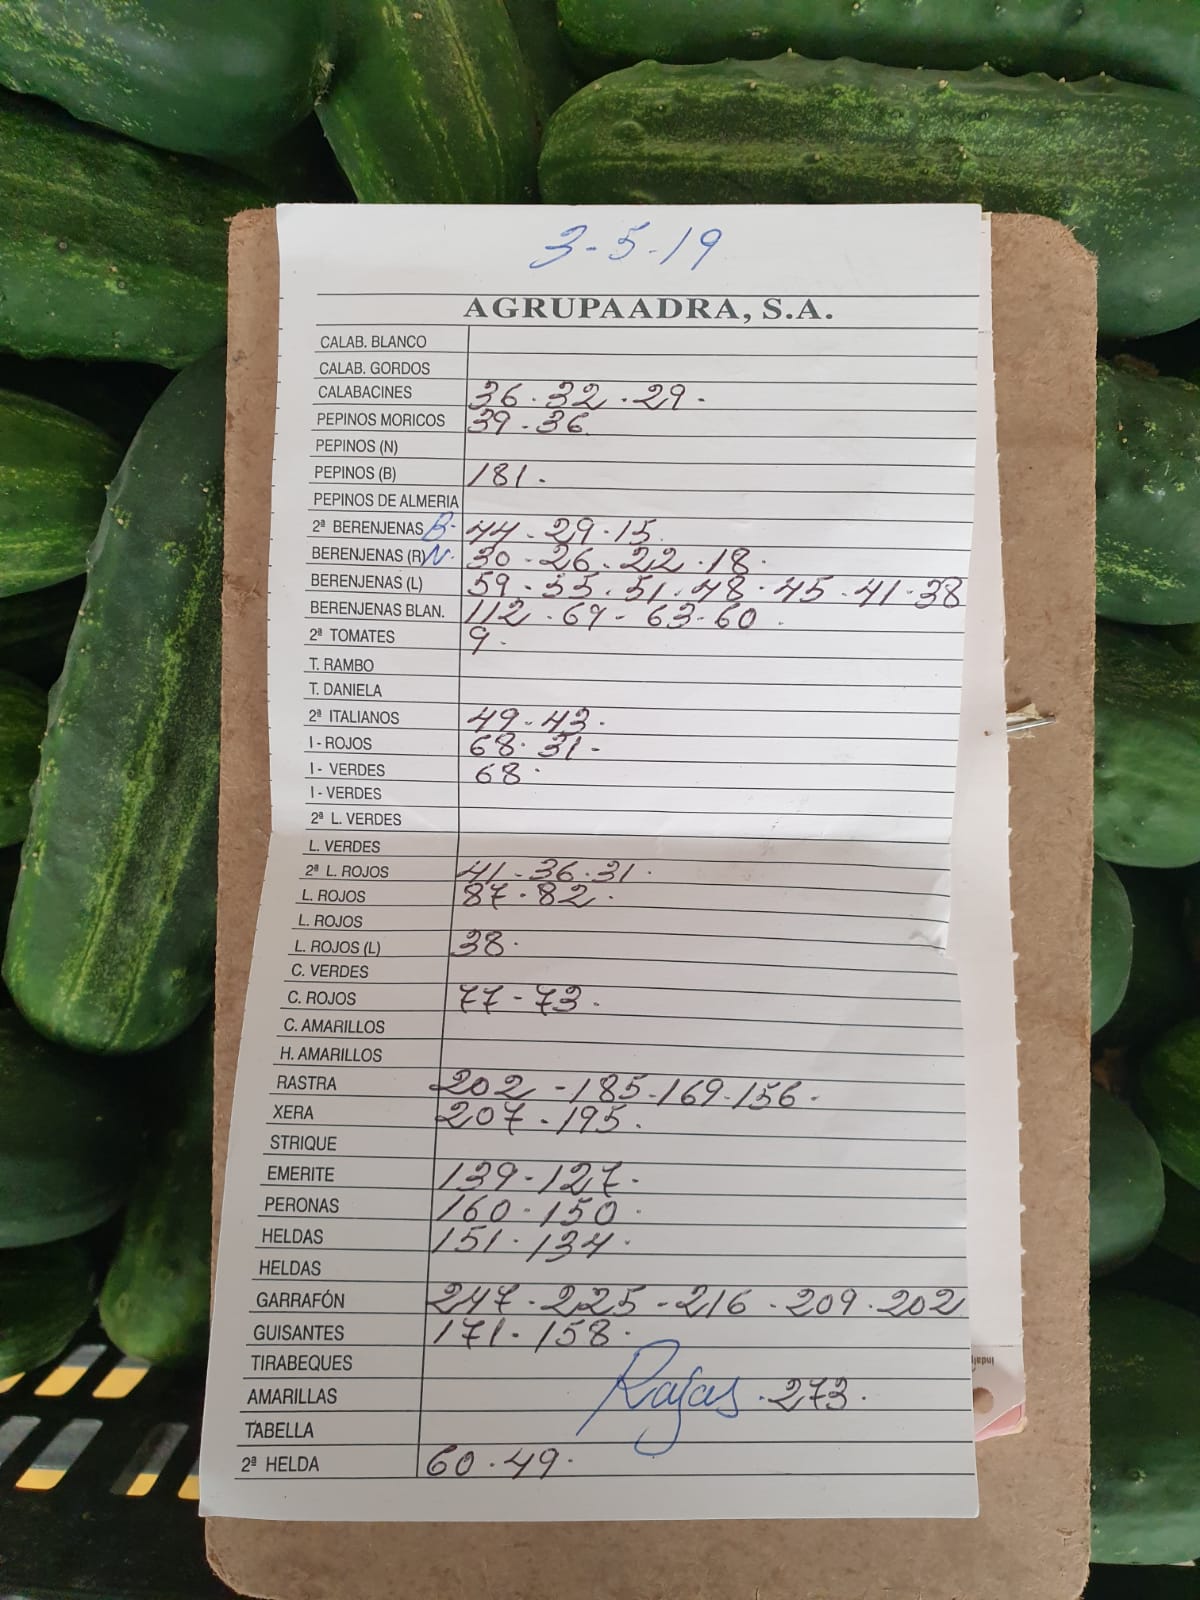 3-5-19
AGRUPAADRA, S.A.
CALAB. BLANCO
CALAB. GORDOS
CALABACINES 36 . 32 . 29 .
PEPINOS MORICOS 39 . 36
PEPINOS (N)
PEPINOS (B) 181 .
PEPINOS DE ALMERIA
2ª BERENJENAS B- 44 - 29 . 15
BERENJENAS (R) N. 30 - 26 . 22 . 18 .
BERENJENAS (L) 59 - 55 . 51 . 48 . 45 . 41 . 38
BERENJENAS BLAN. 112 . 69 - 63 - 60 .
2ª TOMATES 9 .
T. RAMBO
T. DANIELA
2ª ITALIANOS 49 - 43 .
I - ROJOS 68 . 31 -
I - VERDES 68 .
I - VERDES
2ª L. VERDES
L. VERDES
2ª L. ROJOS 41 - 36 . 31 .
L. ROJOS 87 - 82 .
L. ROJOS
L. ROJOS (L) 38 .
C. VERDES
C. ROJOS 77 - 73 .
C. AMARILLOS
H. AMARILLOS
RASTRA 202 - 185 - 169 - 156 .
XERA 207 - 195 .
STRIQUE
EMERITE 139 - 127 .
PERONAS 160 - 150 .
HELDAS 151 . 134 .
HELDAS
GARRAFÓN 247 . 225 - 216 . 209 . 202
GUISANTES 171 . 158 .
TIRABEQUES
AMARILLAS Rajas . 273 .
TABELLA
2ª HELDA 60 . 49 .